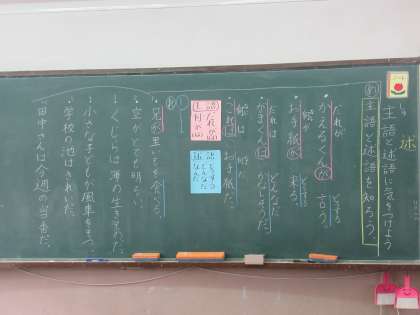 主語と述語に気をつけよう
め 主語と述語を知ろう。
だれが どうする
かえるくんが 言う。
何が どうする
お手紙が 来る。
だれは どんなだ
がまくんは かなしそうだ。
何は 何だ
これは お手紙だ。
兄が黒いももを食べる
空がとても明るい。
くじらは海の生きものだ。
小さな子どもが風車をもつ。
学校の池はきれいだ。
田中さんは今週の当番だ。